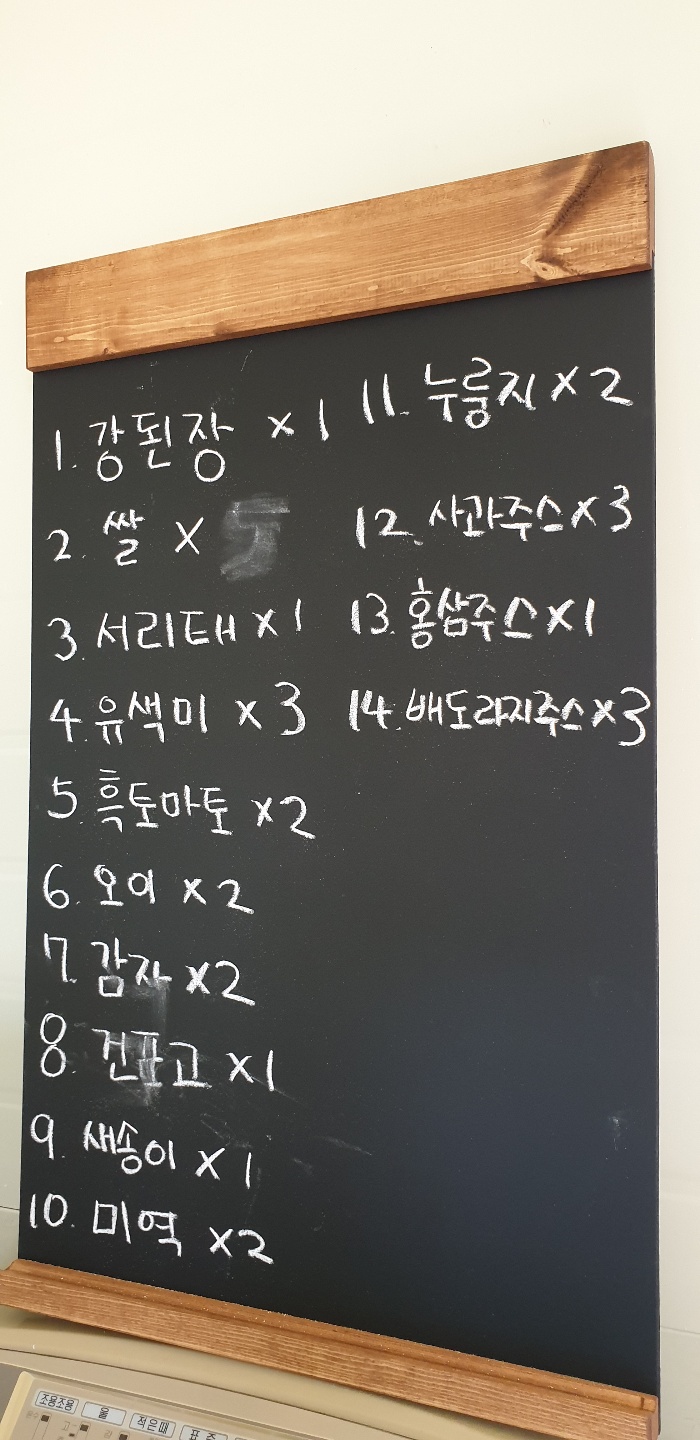 1. 강된장 x 1
2. 쌀 x
3. 서리태 x 1
4. 유색미 x 3
5. 흑토마토 x 2
6. 오이 x 2
7. 감자 x 2
8. 건표고 x 1
9. 새송이 x 1
10. 미역 x 2
11. 누룽지 x 2
12. 사과주스 x 3
13. 홍삼주스 x 1
14. 배도라지주스 x 3
조용조용
울
적은때
표준